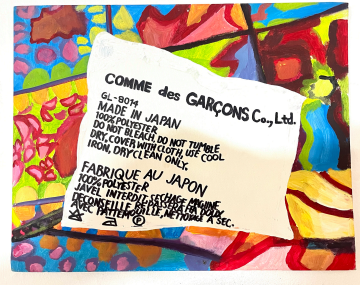 COMME des GARÇONS Co., Ltd.
GL-8014
MADE IN JAPAN
100% POLYESTER
DO NOT BLEACH. DO NOT TUMBLE
DRY, COVER WITH CLOTH, USE COOL
IRON, DRY CLEAN ONLY.
FABRIQUE AU JAPON
100% POLYESTER
JAVEL INTERDIT, SECHAGE MACHINE
DECONSEILLE, REPASSAGE DOUX
AVEC PATTEMOUILLE, NETTOYAGE A SEC.